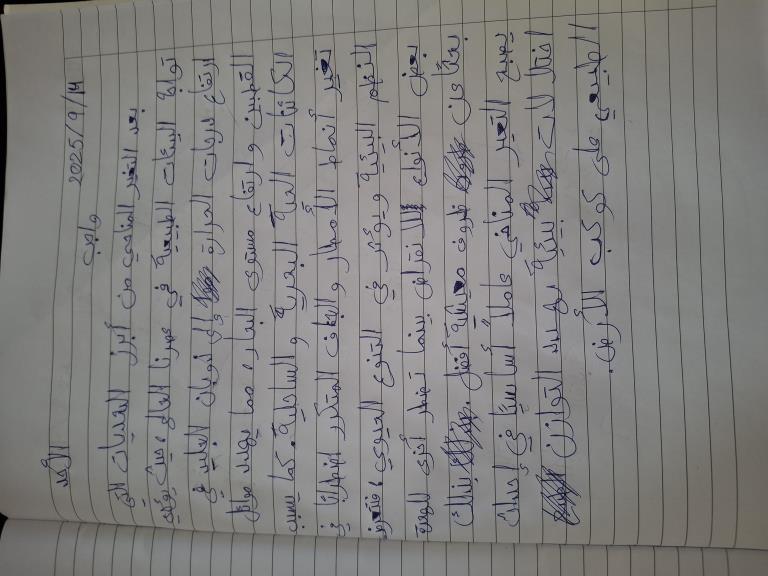 الأحد 2025/9/14
واجب
يعد التغير المناخي من أبرز التحديات التي
تواجه البيئات الطبيعية في عصرنا الحالي، حيث يؤدي
ارتفاع درجات الحرارة إلى ذوبان الجليد في
القطبين وارتفاع مستوى البحار، مما يهدد موائل
الكائنات الحية البحرية والساحلية. كما يسبب
تغير أنماط الأمطار والجفاف المتكرر اضطرابًا في
النظم البيئية ويؤثر في التنوع الحيوي، فتتعرض
بعض الأنواع للانقراض بينما تضطر أخرى للهجرة
بحثًا عن ظروف معيشية أفضل. بذلك
يصبح التغير المناخي عاملاً أساسيًا في إحداث
اختلالات بيئية تهدد التوازن
الطبيعي على كوكب الأرض.